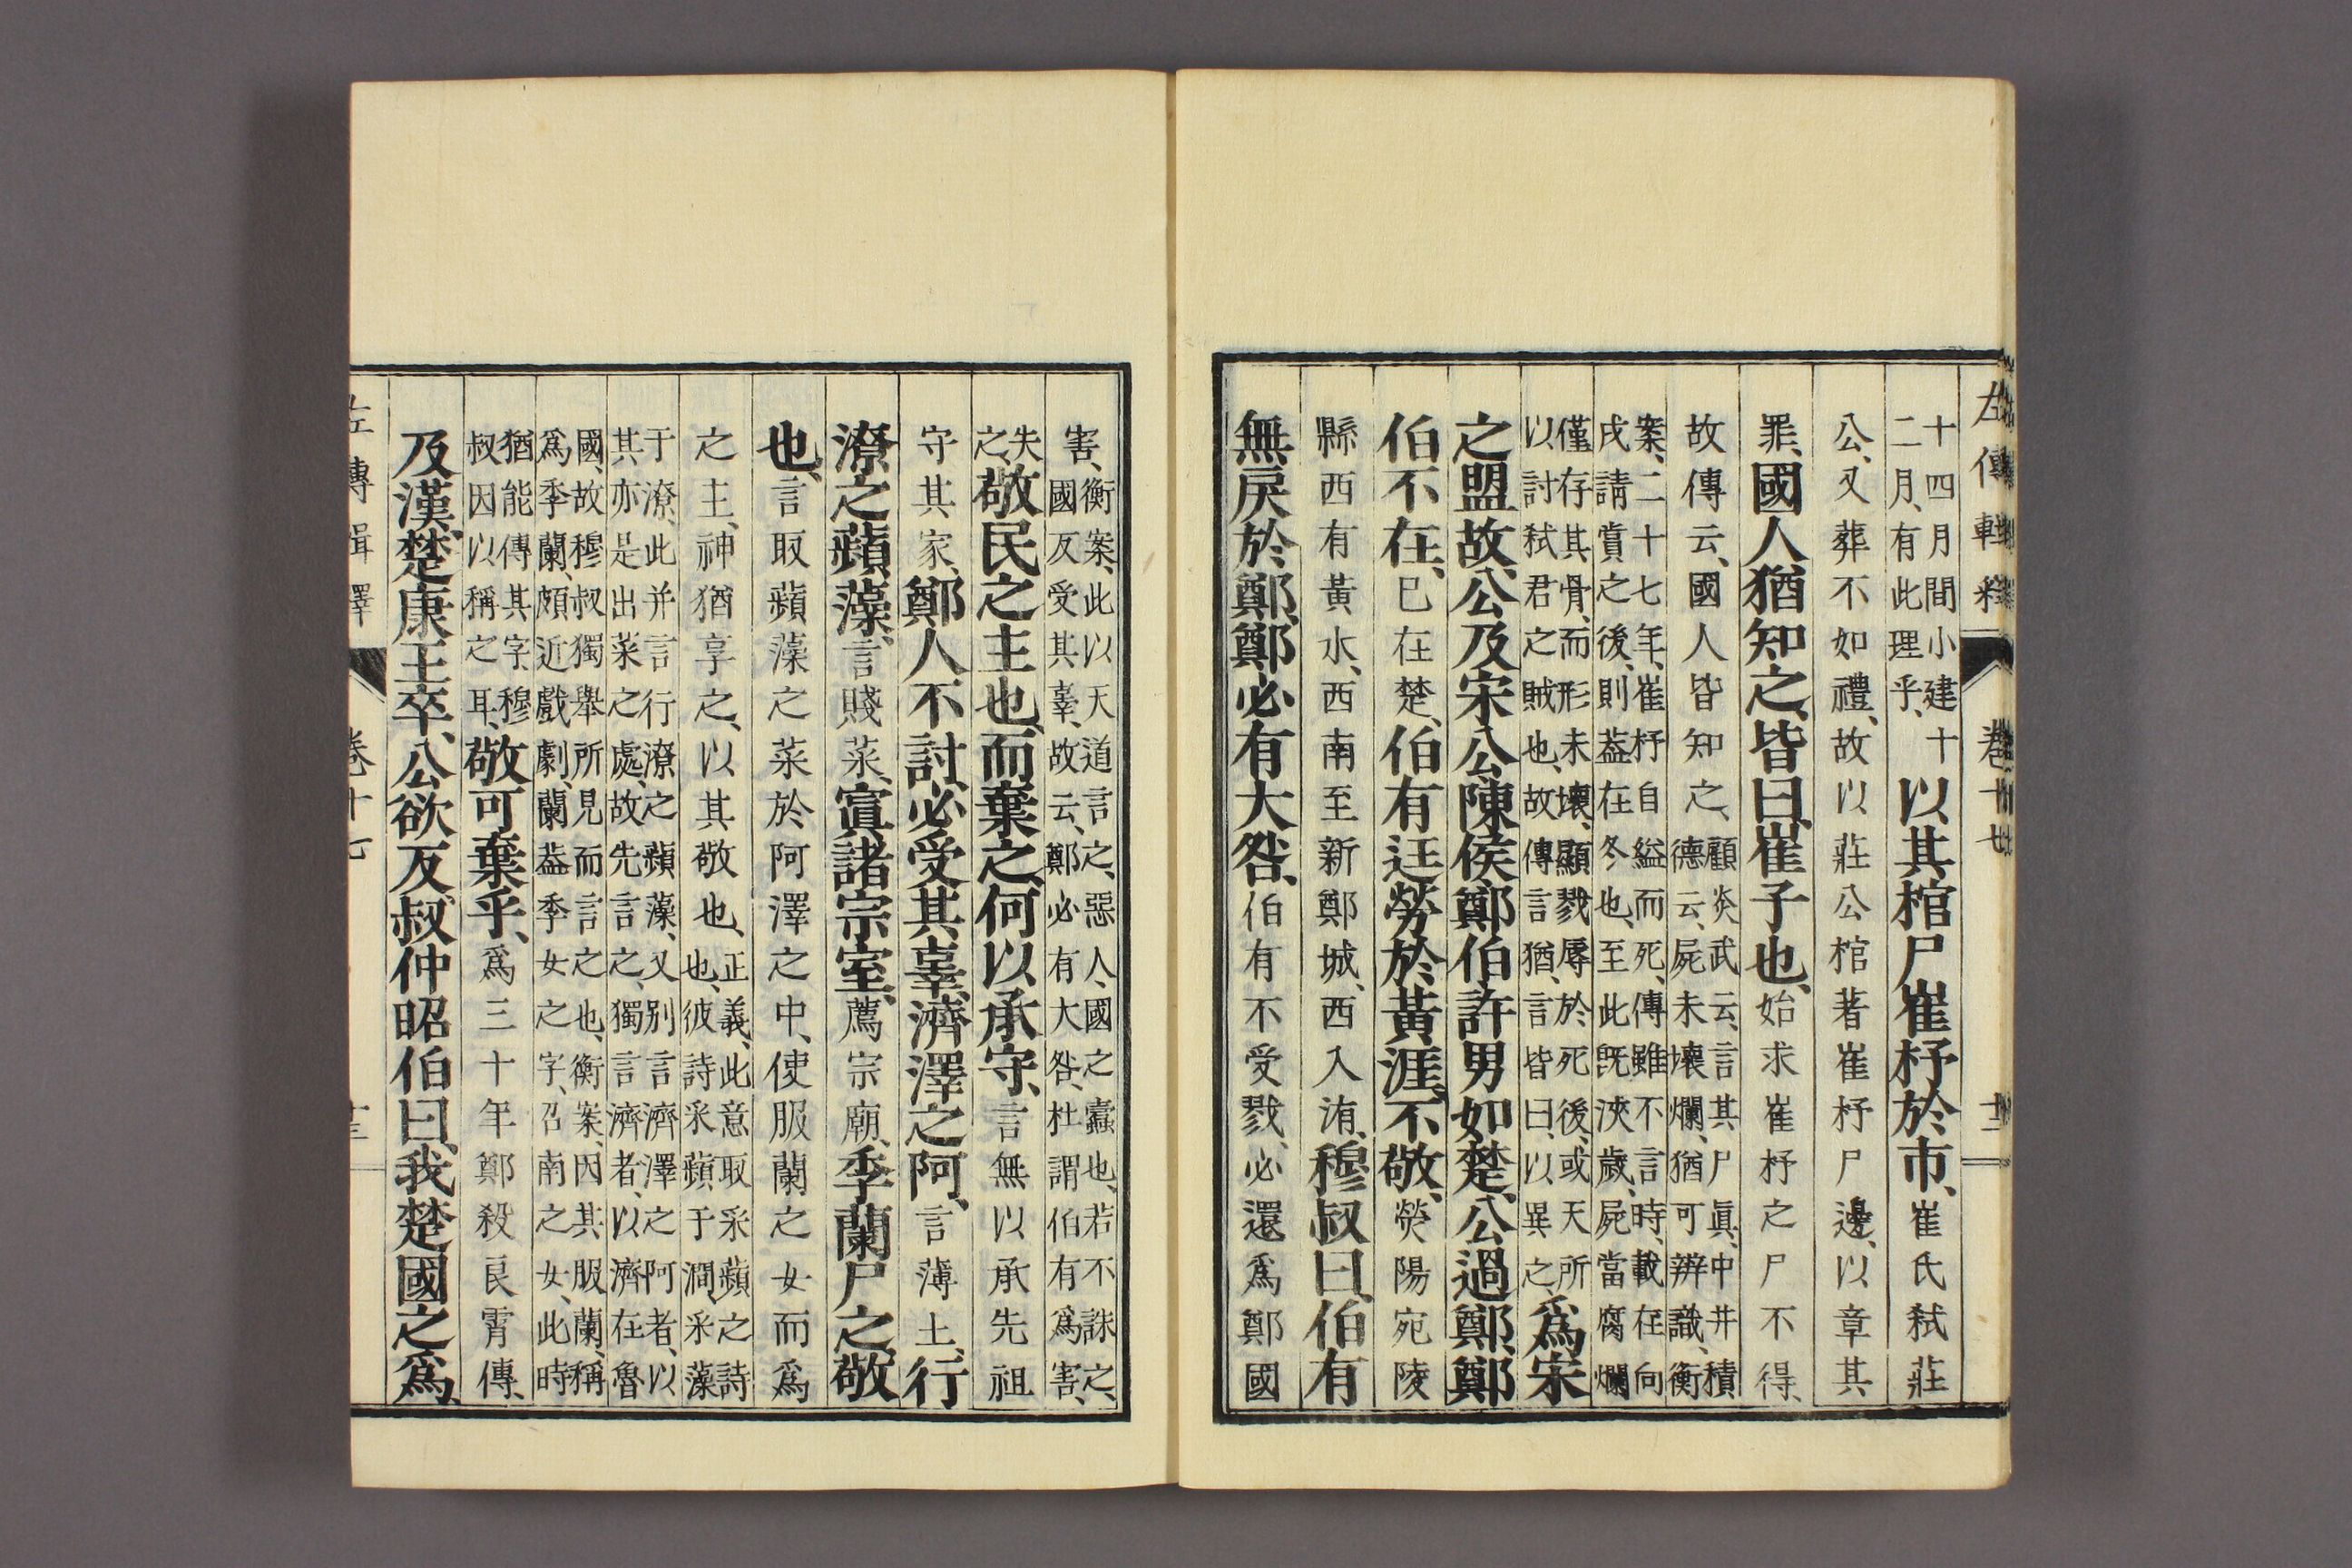 左傳輯釋 卷十七 十二
十四月間小建十
二月、有此理乎、
以其棺尸崔杼於市、崔氏弒莊
公、又葬不如禮、故以莊公棺著崔杼尸邊、以章其
罪、國人猶知之、皆曰、崔子也、始求崔杼之尸不得、
故傳云、國人皆知之、
顧炎武云、言其尸眞、中井積
德云、屍未壞爛、猶可辨識、衡
案、二十七年、崔杼自縊而死、傳雖不言時、載在向
戌請賞之後、則葢在冬也、至此旣浹歲、屍當腐爛
僅存其骨、而形未壞、顯戮辱於死後、或天所
以討弒君之賊也、故傳言猶、言皆曰、以異之、
爲宋
之盟故、公及宋公陳侯鄭伯許男如楚、公過鄭、鄭
伯不在、已在楚、伯有迋勞於黃涯、不敬、熒陽宛陵
縣西有黃水、西南至新鄭城、西入洧、穆叔曰、伯有
無戾於鄭、鄭必有大咎、伯有不受戮、必還爲鄭國
害、
衡案、此以天道言之、惡人、國之蠹也、若不誅之、
國反受其辜、故云、鄭必有大咎、杜謂伯有爲害、
失
之、
敬民之主也、而棄之、何以承守、言無以承先祖
守其家、鄭人不討、必受其辜、濟澤之阿、言薄土、行
潦之蘋藻、言賤菜、寘諸宗室、薦宗廟、季蘭尸之、敬
也、言取蘋藻之菜於阿澤之中、使服蘭之女而爲
之主、神猶享之、以其敬也、
正義、此意取采蘋之詩
也、彼詩采蘋于澗、采藻
于潦、此并言行潦之蘋藻、又別言濟澤之阿者、以
其亦是出菜之處、故先言之、獨言濟者、以濟在魯
國、故穆叔獨舉所見而言之也、衡案、因其服蘭、稱
爲季蘭、頗近戲劇、蘭葢季女之字、召南之女、此時
猶能傳其字、穆
叔因以稱之耳、
敬可棄乎、爲三十年鄭殺良霄傳、
及漢、楚康王卒、公欲反、叔仲昭伯曰、我楚國之爲、
左傳輯釋 卷十七 十三